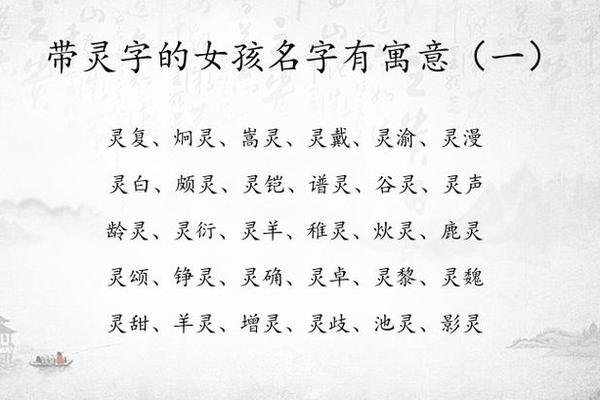 带灵字的女孩名字有寓意（一）
灵复、炯灵、嵩灵、灵戴、灵渝、灵漫
灵白、颇灵、灵铠、谱灵、谷灵、灵声
龄灵、灵衍、灵羊、稚灵、炏灵、鹿灵
灵颂、铮灵、灵确、灵卓、灵黎、灵魏
灵甜、羊灵、增灵、灵歧、池灵、影灵